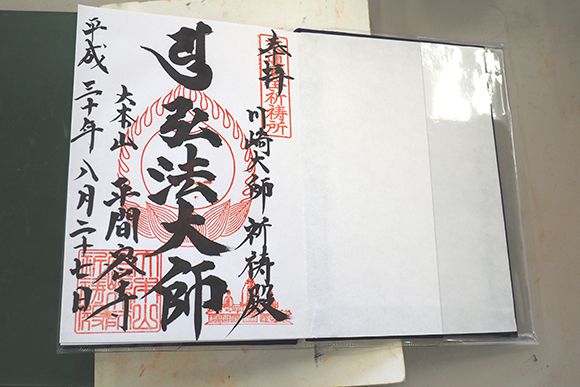 奉拝
川崎大師 祈祷殿
弘法大師
大本山 平間寺
平成三十年八月二十七日